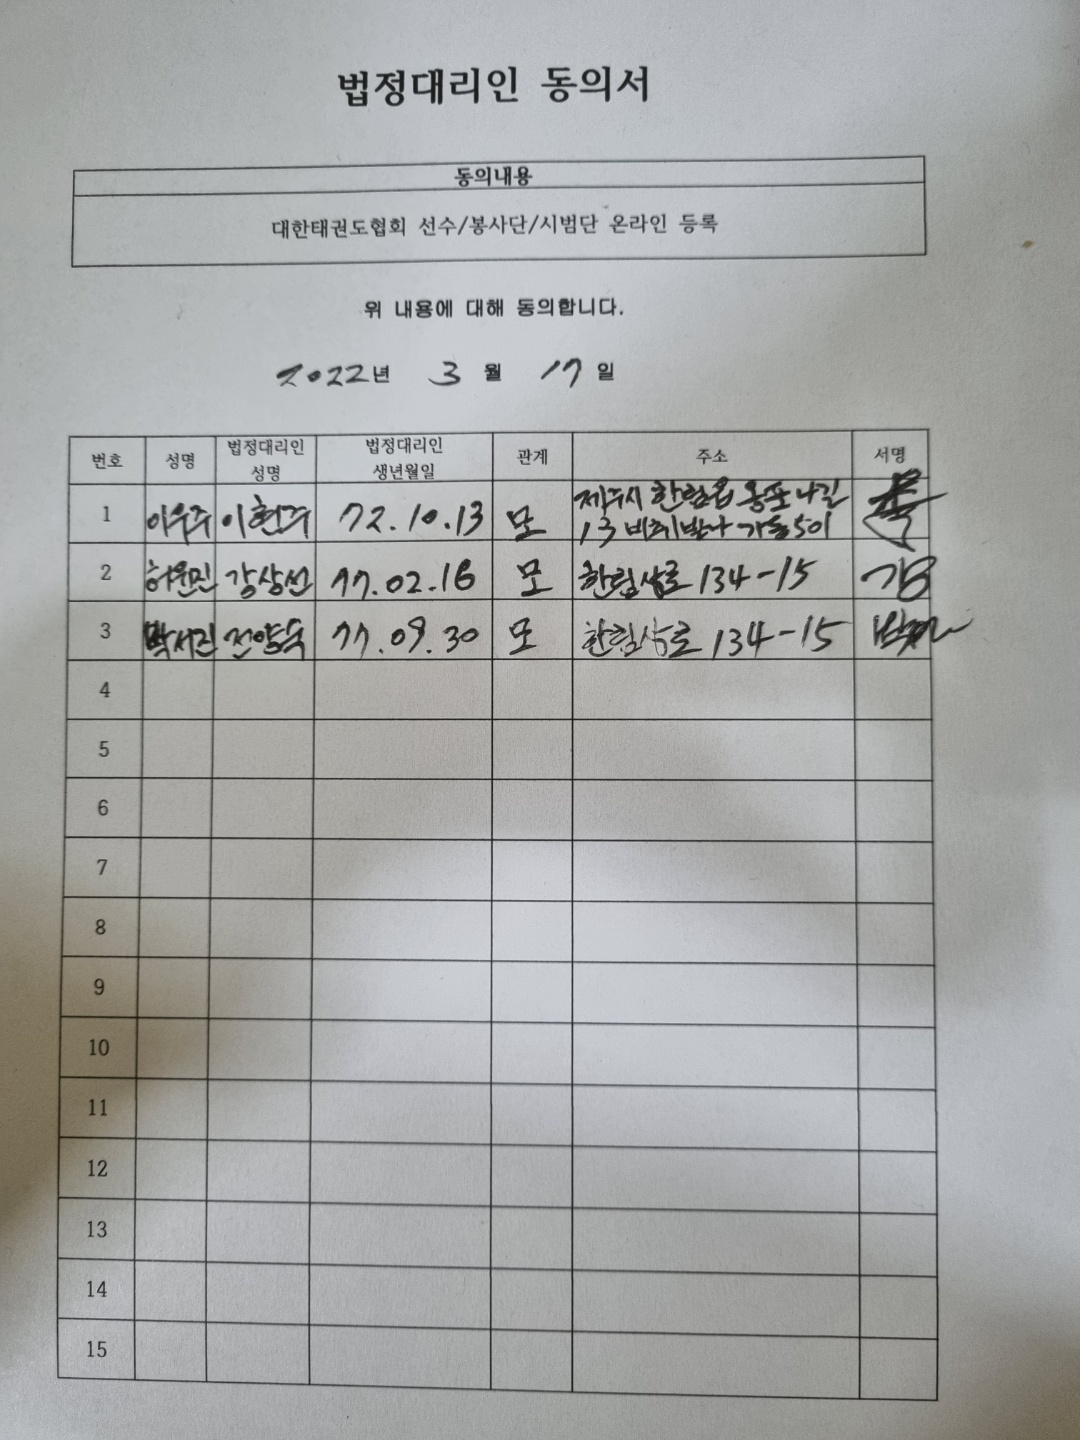 법정대리인 동의서
동의내용
대한태권도협회 선수/봉사단/시범단 온라인 등록
위 내용에 대해 동의합니다.
2022년 3월 17일
번호 성명 법정대리인 성명 법정대리인 생년월일 관계 주소 서명
1 이우주 이현주 72.10.13 모 제주시 한림읍 옹포나길
13 가동501
2 허윤민 강상선 77.02.16 모 한림상로 134-15
3 박서진 전양숙 77.09.30 모 한림상로 134-15
4
5
6
7
8
9
10
11
12
13
14
15